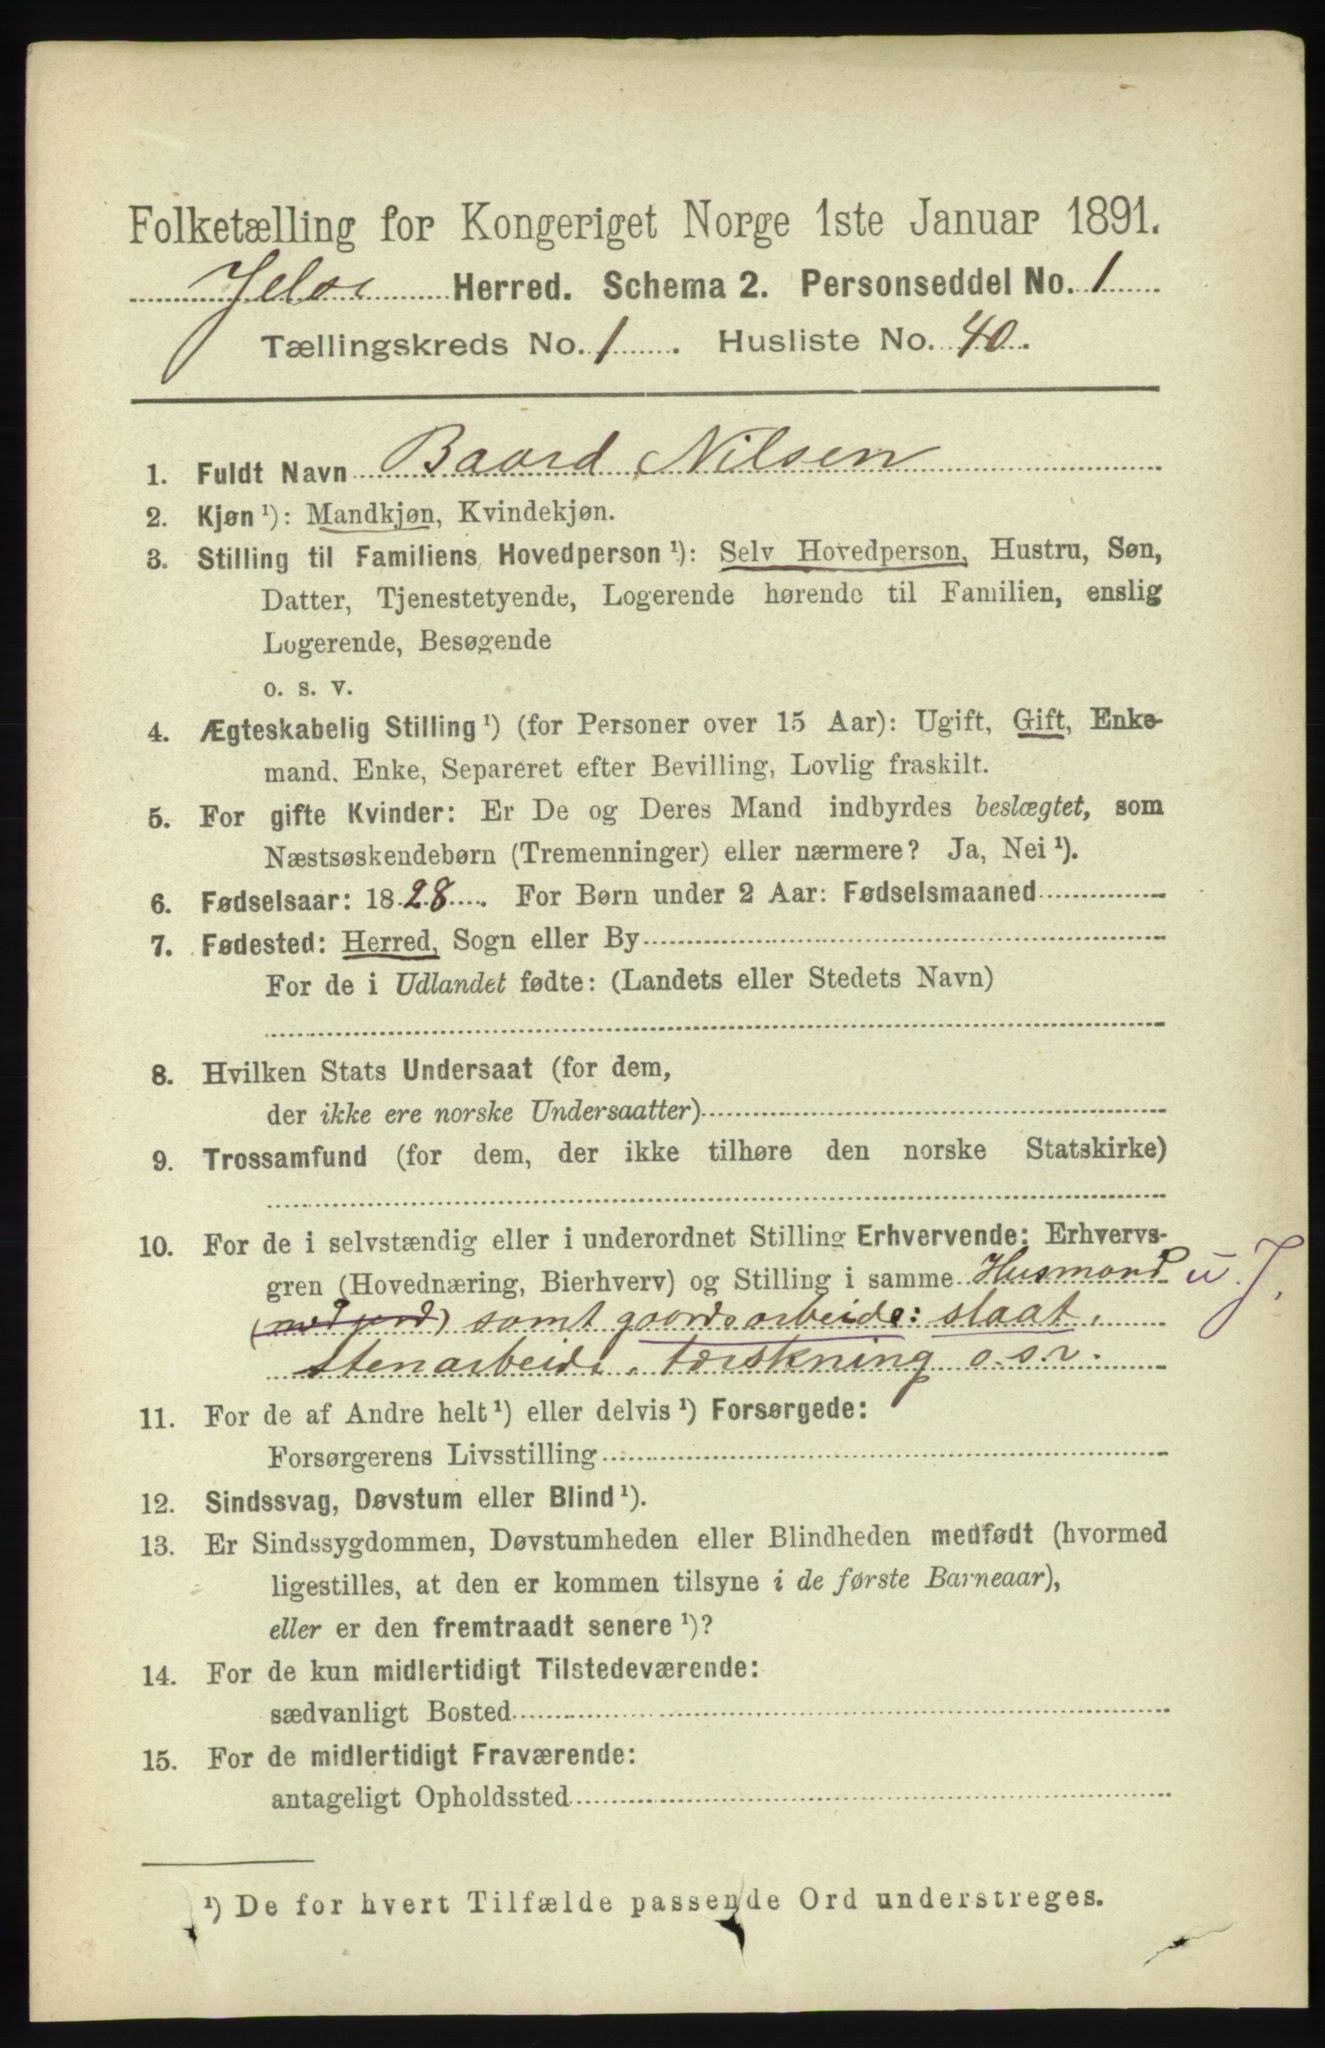 Folketælling for Kongeriget Norge 1ste Januar 1891.
Jelse Herred. Schema 2. Personseddel No. 1
Tællingskreds No. 1. Husliste No. 40.
1. Fuldt Navn Baard Nilsen
2. Kjøn ¹): Mandkjøn, Kvindekjøn.
3. Stilling til Familiens Hovedperson ¹): Selv Hovedperson, Hustru, Søn,
Datter, Tjenestetyende, Logerende hørende til Familien, enslig
Logerende, Besøgende
o. s. v.
4. Ægteskabelig Stilling ¹) (for Personer over 15 Aar): Ugift, Gift, Enke-
mand, Enke, Separeret efter Bevilling, Lovlig fraskilt.
5. For gifte Kvinder: Er De og Deres Mand indbyrdes beslægtet, som
Næstsøskendebørn (Tremenninger) eller nærmere? Ja, Nei ¹).
6. Fødselsaar: 1828. For Børn under 2 Aar: Fødselsmaaned
7. Fødested: Herred, Sogn eller By
For de i Udlandet fødte: (Landets eller Stedets Navn)
8. Hvilken Stats Undersaat (for dem,
der ikke ere norske Undersaatter)
9. Trossamfund (for dem, der ikke tilhøre den norske Statskirke)
10. For de i selvstændig eller i underordnet Stilling Erhvervende: Erhvervs-
gren (Hovednæring, Bierhverv) og Stilling i samme Husmand u. J.
(med jord) samt gaardsarbeide: slaat,
stenarbeide, tærskning o.s.v.
11. For de af Andre helt ¹) eller delvis ¹) Forsørgede:
Forsørgerens Livsstilling
12. Sindssvag, Døvstum eller Blind ¹).
13. Er Sindssygdommen, Døvstumheden eller Blindheden medfødt (hvormed
ligestilles, at den er kommen tilsyne i de første Barneaar),
eller er den fremtraadt senere ¹)?
14. For de kun midlertidigt Tilstedeværende:
sædvanligt Bosted
15. For de midlertidigt Fraværende:
antageligt Opholdssted
¹) De for hvert Tilfælde passende Ord understreges.